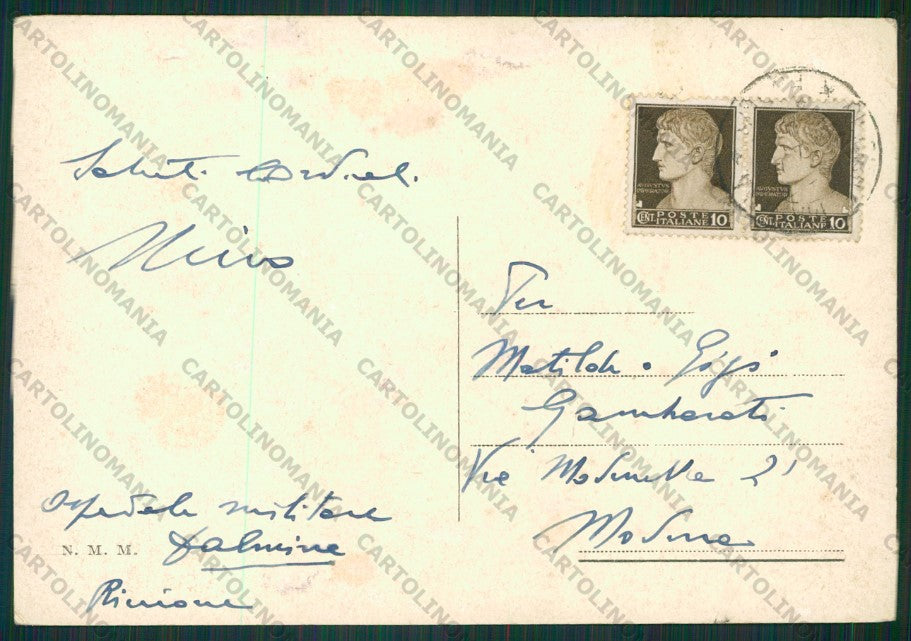 Saluti Cordiali
Nino
Ospedale militare
Dalmine
Riccione
N. M. M.
AVGVSTVS
IMPERATOR
CENT. POSTE ITALIANE 10
AVGVSTVS
IMPERATOR
CENT. POSTE ITALIANE 10
Matilde e Gigi
Gambarati
Via 21
Modena
CARTOLINOMANIA